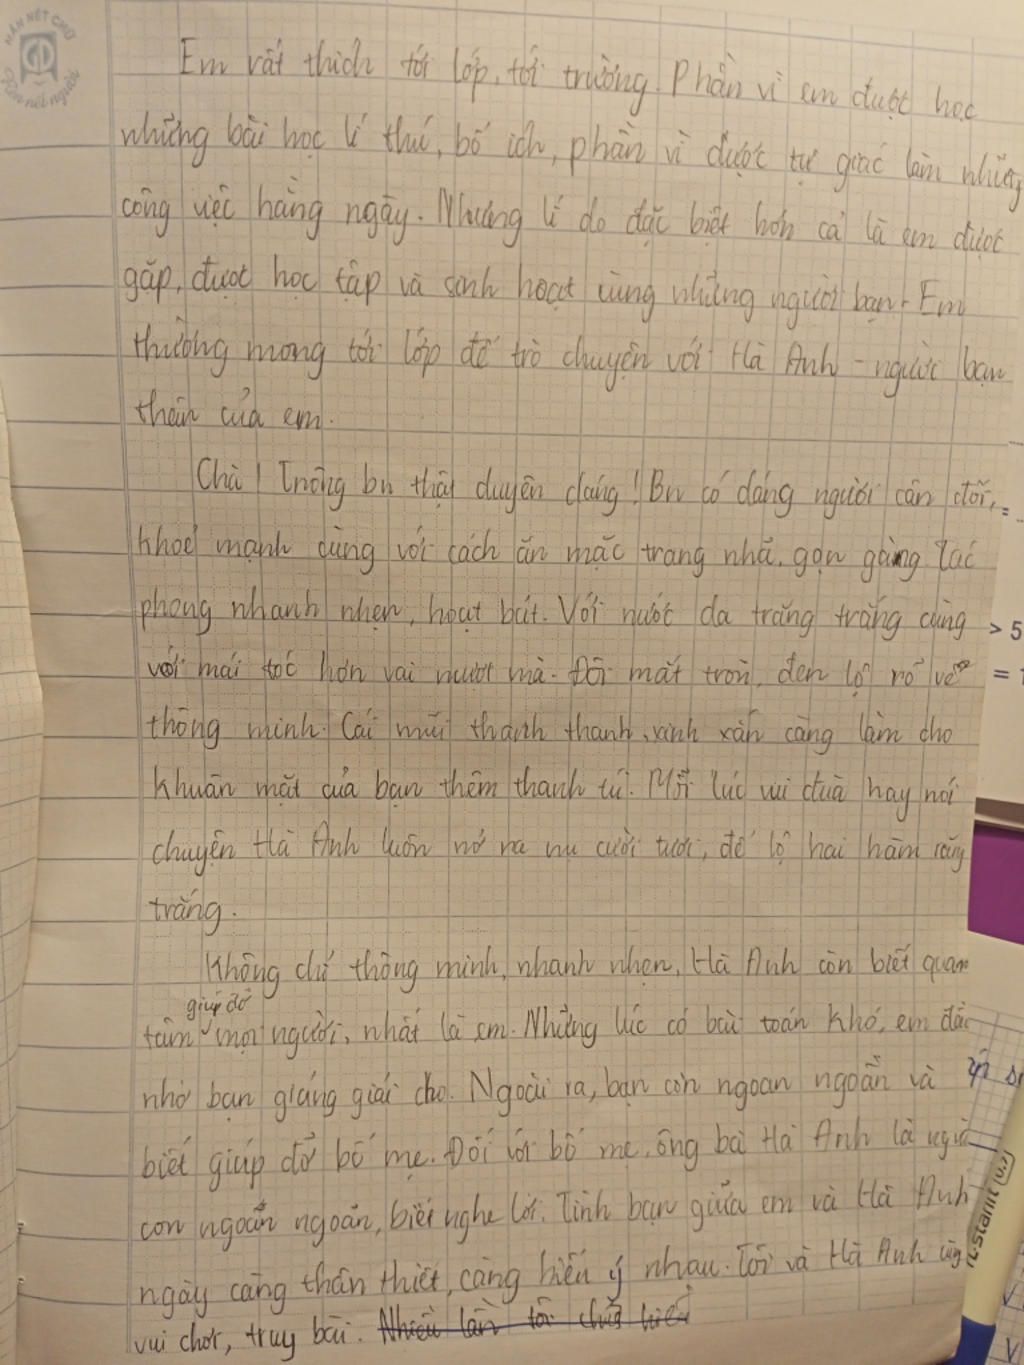 NẮN NÉT CHỮ
Rèn nết người
Em rất thích tới lớp, tới trường. Phần vì em được học
những bài học lí thú, bổ ích, phần vì được tự giác làm những
công việc hằng ngày. Nhưng lí do đặc biệt hơn cả là em được
gặp, được học tập và sinh hoạt cùng những người bạn. Em
thường mong tới lớp để trò chuyện với Hà Anh - người bạn
thân của em.
Chà! Trông bn thật duyên dáng! Bn có dáng người cân đối,
khoẻ mạnh cùng với cách ăn mặc trang nhã, gọn gàng Tác
phong nhanh nhẹn, hoạt bát. Với nước da trăng trắng cùng
với mái tóc hơn vai mượt mà. Đôi mắt tròn, đen lộ rõ vẻ
thông minh. Cái mũi thanh thanh, xinh xắn càng làm cho
khuân mặt của bạn thêm thanh tú. Mỗi lúc vui đùa hay nói
chuyện Hà Anh luôn nở ra nụ cười tươi, để lộ hai hàm răng
trắng.
Không chỉ thông minh, nhanh nhẹn, Hà Anh còn biết quan
giúp đỡ
tâm mọi người, nhất là em. Những lúc có bài toán khó, em
nhờ bạn giảng giải cho. Ngoài ra, bạn còn ngoan ngoãn và
biết giúp đỡ bố mẹ. Đối với bố mẹ, ông bà Hà Anh là
con ngoan ngoãn, biết nghe lời. Tình bạn giữa em và Hà Anh
ngày càng thân thiết, càng hiểu ý nhau. Tôi và Hà Anh cùng
vui chơi, truy bài. Nhiều lần tôi chưa hiểu
> 5
=
TL-Starlit (0,7)